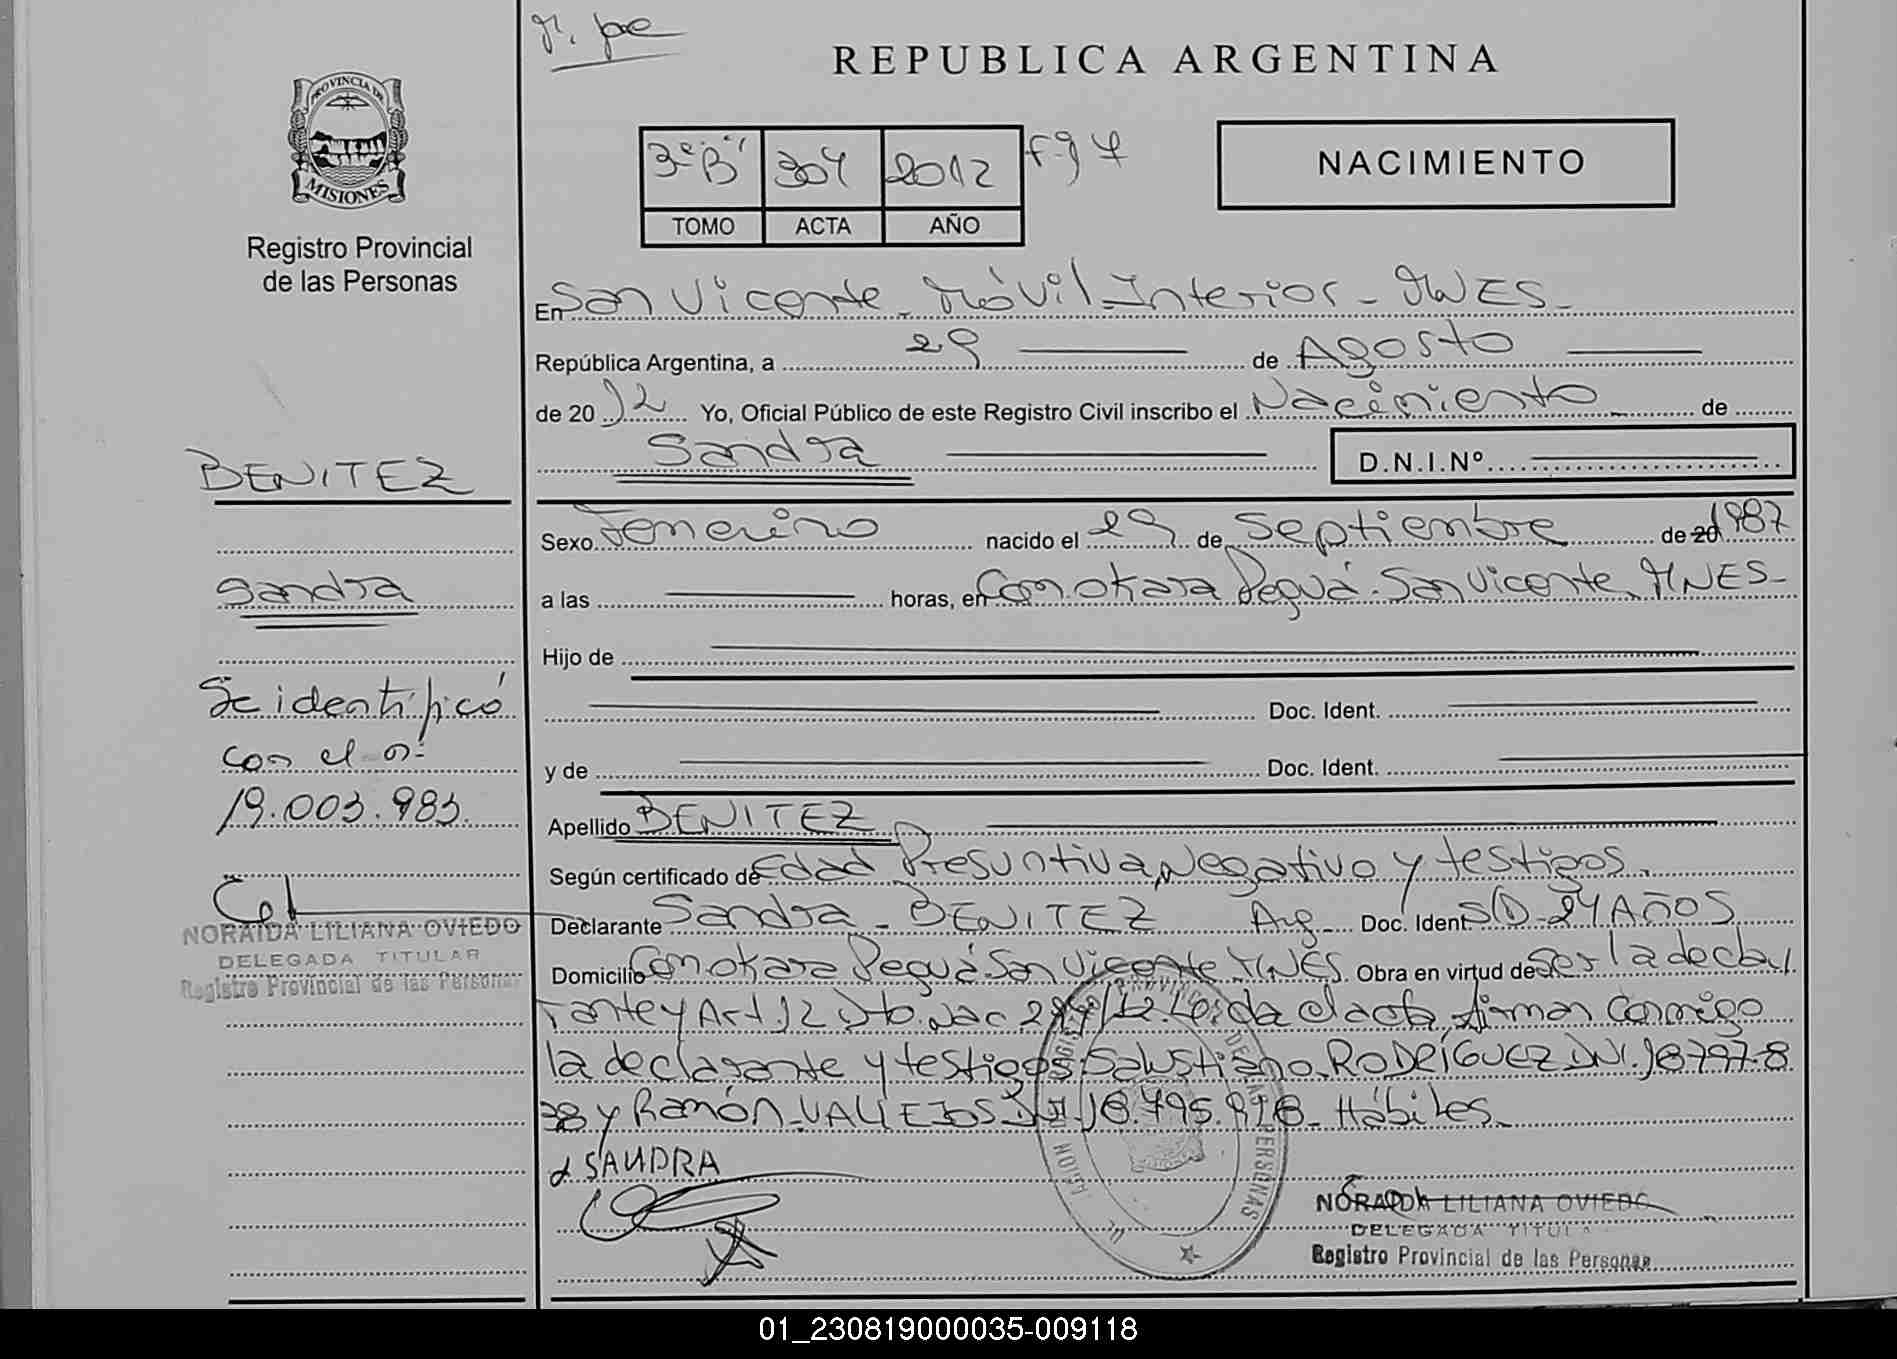 REPUBLICA ARGENTINA
PROVINCIA DE
MISIONES
Registro Provincial
de las Personas
3º "B" 304 2012
TOMO ACTA AÑO
NACIMIENTO
En San Vicente - Móvil - Interior - MNES -
República Argentina, a 29 de Agosto
de 2012 Yo, Oficial Público de este Registro Civil inscribo el Nacimiento de
Sandra D.N.I.Nº
BENITEZ
Sandra
Se identificó
con el nº
19.003.983.
NORAIDA LILIANA OVIEDO
DELEGADA TITULAR
Registro Provincial de las Personas
Sexo Femenino nacido el 29 de Septiembre de 20 1987
a las horas, en Comokara Peguá - San Vicente MNES -
Hijo de
Doc. Ident.
y de Doc. Ident.
Apellido BENITEZ
Según certificado de Edad Presuntiva, Negativo y testigos.
Declarante Sandra - BENITEZ Arg. Doc. Ident. S/D - 24 AÑOS
Domicilio Comokara Peguá San Vicente MNES. Obra en virtud de Ser la decla
rante y Art. 12 Dto. Nac 297/12. Leída el acta, firman conmigo
la declarante y testigos: Salustiano RODRÍGUEZ DNI. 18797.8
38 y Ramón - VALLEJOS DNI 18.795.918 - Hábiles.
SANDRA
NORAIDA LILIANA OVIEDO
DELEGADA TITULA
Registro Provincial de las Personas
01_230819000035-009118